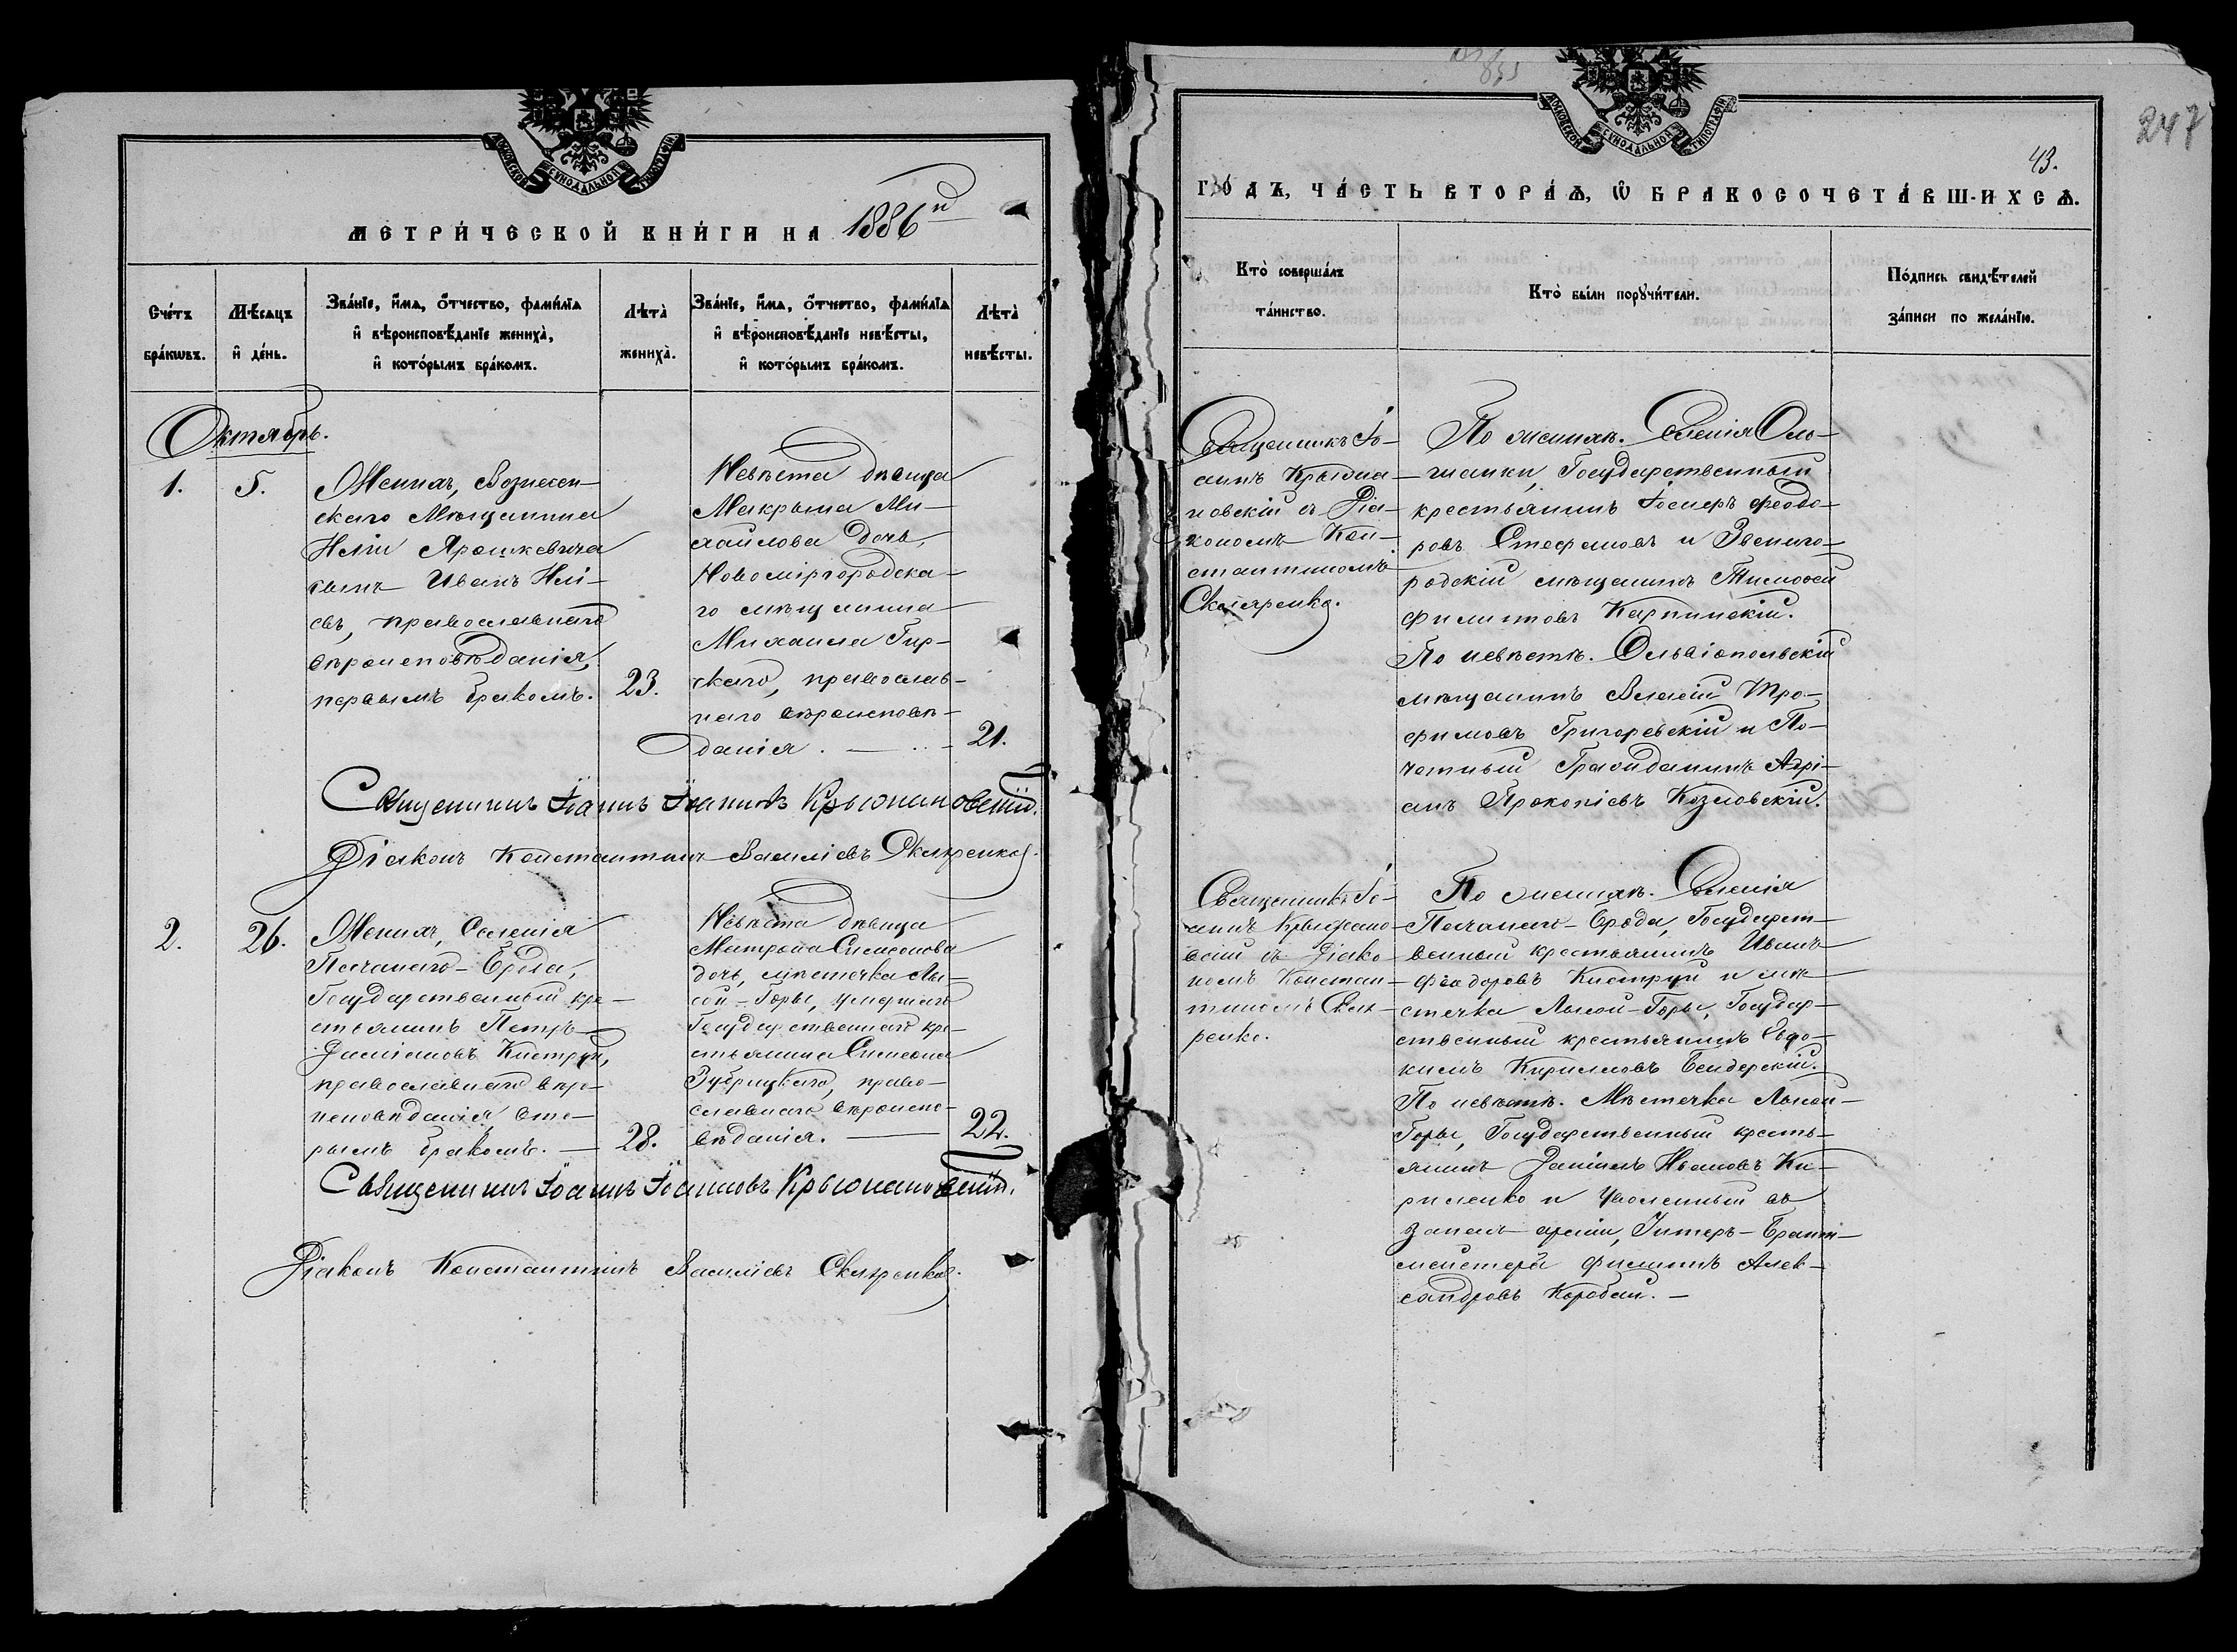 МОСКОВСКОЙ СУНОДАЛЬНОЙ ТИПОГРАФІИ
МЕТРИ́ЧЕСКОЙ КНИ́ГИ НА 1886й
Сче́тъ бра́кωвъ.
Мѣ́сяцъ и҆ де́нь.
Зва́нїе, и҆́мѧ, ѻ҆́тчество, фами́лїѧ
и҆ вѣроисповѣ́данїе жениха̀,
и҆ кото́рымъ бра́комъ.
Лѣта̀
жениха̀.
Зва́нїе, и҆́мѧ, ѻ҆́тчество, фами́лїѧ
и҆ вѣроисповѣ́данїе невѣ́сты,
и҆ кото́рымъ бра́комъ.
Лѣта̀
невѣ́сты.
Октябрь.
1.
5.
Женихъ, Вознесен-
скаго Мѣщанина
Иліи Ярошкевича
сынъ Иванъ Илі-
евъ, православнаго
вѣроисповѣданія,
первымъ бракомъ.
23.
Невѣста дѣвица
Макрина Ми-
хайлова дочь,
Новомиргородска-
го мѣщанина
Михаила Гир-
скаго, православ-
наго вѣроисповѣ-
данія.
21.
Священникъ Іоаннъ Іоанновъ Крыжановскій.
Діаконъ Константинъ Василіевъ Скляренко.
2.
26.
Женихъ, Селенія
Песчанаго-Брода,
Государственный кре-
стьянинъ Петръ
Даміановъ Киструн,
православнаго вѣро-
исповѣданія, вто-
рымъ бракомъ.
28.
Невѣста дѣвица
Матрона Симеонова
дочь, мѣстечка Лы-
сой-Горы, умершаго
Государственнаго кре-
стьянина Симеона
Зубрицкаго, право-
славнаго вѣроиспо-
вѣданія.
22.
Священникъ Іоаннъ Іоанновъ Крыжановскій.
Діаконъ Константинъ Василіевъ Скляренко.
247
43.
МОСКОВСКОЙ СУНОДАЛЬНОЙ ТИПОГРАФІИ
ГО́ДЪ, ЧА́СТЬ ВТОРА́Ѧ, Ѽ БРАКОСОЧЕТА́ВШИХСѦ.
Кто̀ соверша́лъ
та́инство.
Кто̀ бы́ли порꙋчи́тели.
По́дпись свидѣ́телей
за́писи по жела́нїю.
Священникъ Іо-
аннъ Крыжа-
новскій съ Діа-
кономъ Кон-
стантиномъ
Скляренко.
По женихѣ. Селенія Оль-
шанки, Государственный
крестьянинъ Іосифъ Феодо-
ровъ Стефановъ и Звениго-
родскій мѣщанинъ Тимофей
Филиповъ Карпинскій.
По невѣстѣ. Ольвіопольскій
мѣщанинъ Василій Тро-
фимовъ Григоревскій и По-
четный Гражданинъ Адрі-
анъ Прокопіевъ Козловскій.
Священникъ Іо-
аннъ Крыжано-
вскій съ Діако-
номъ Констан-
тиномъ Скля-
ренко.
По женихѣ. Селенія
Песчанаго-Брода, Государст-
венный крестьянинъ Иванъ
Феодоровъ Киструн и мѣ-
стечка Лысой-Горы, Государ-
ственный крестьянинъ Евдо-
кимъ Кирилловъ Бендерскій.
По невѣстѣ. Мѣстечка Лысой-
Горы, Государственный кресть-
янинъ Даніилъ Ивановъ Ки-
риленко и Уволенный въ
запасъ арміи, Унтеръ-
Филиппъ Алек-
сандровъ Коробай.